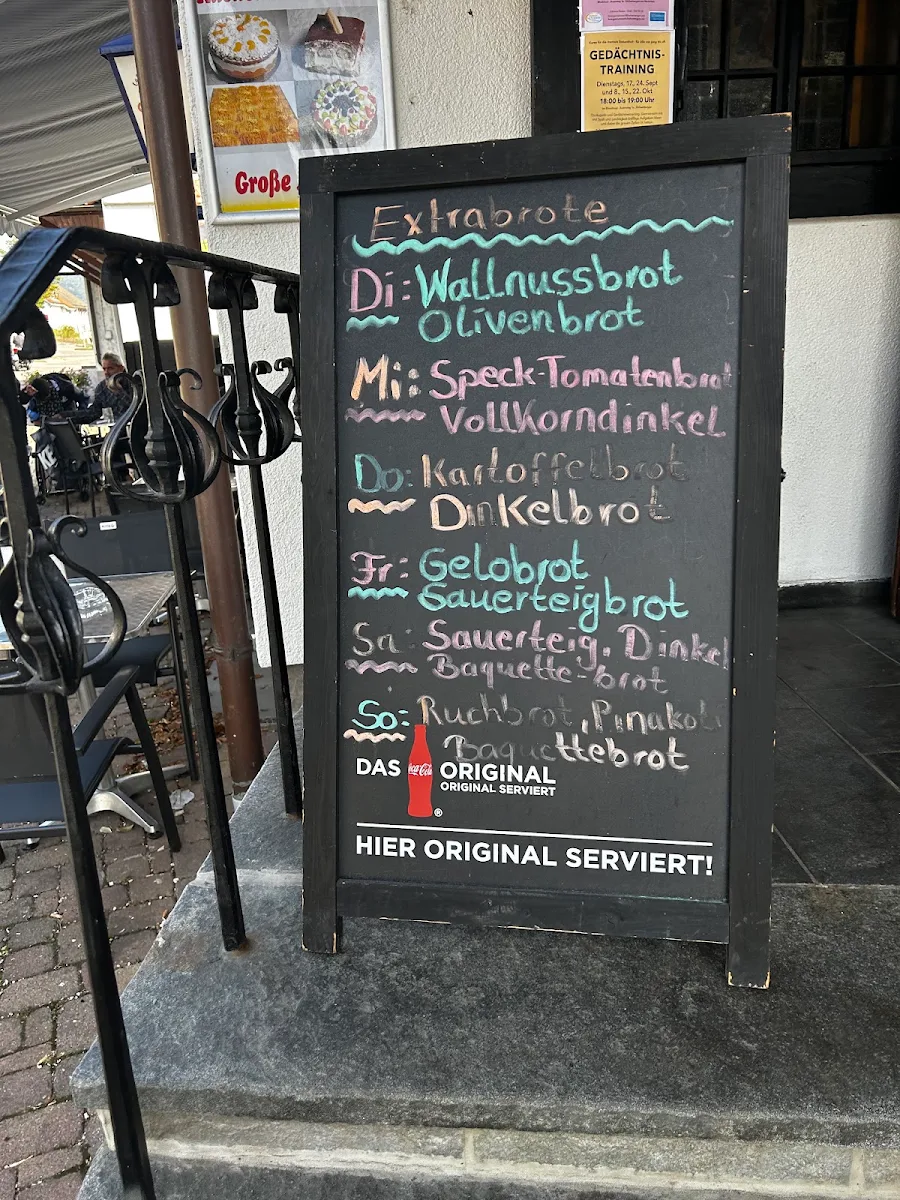 Große
GEDÄCHTNIS-
TRAINING
Dienstags, 17., 24. Sept
und 8., 15., 22. Okt
18:00 bis 19:00 Uhr
Extrabrote
Di: Wallnussbrot
Olivenbrot
Mi: Speck-Tomatenbrot
Vollkorndinkel
Do: Kartoffelbrot
Dinkelbrot
Fr: Gelobrot
Sauerteigbrot
Sa: Sauerteig, Dinkel
Baquette-brot
So: Ruchbrot, Pinakoli
Baquettebrot
DAS Coca-Cola ORIGINAL
ORIGINAL SERVIERT
®
HIER ORIGINAL SERVIERT!